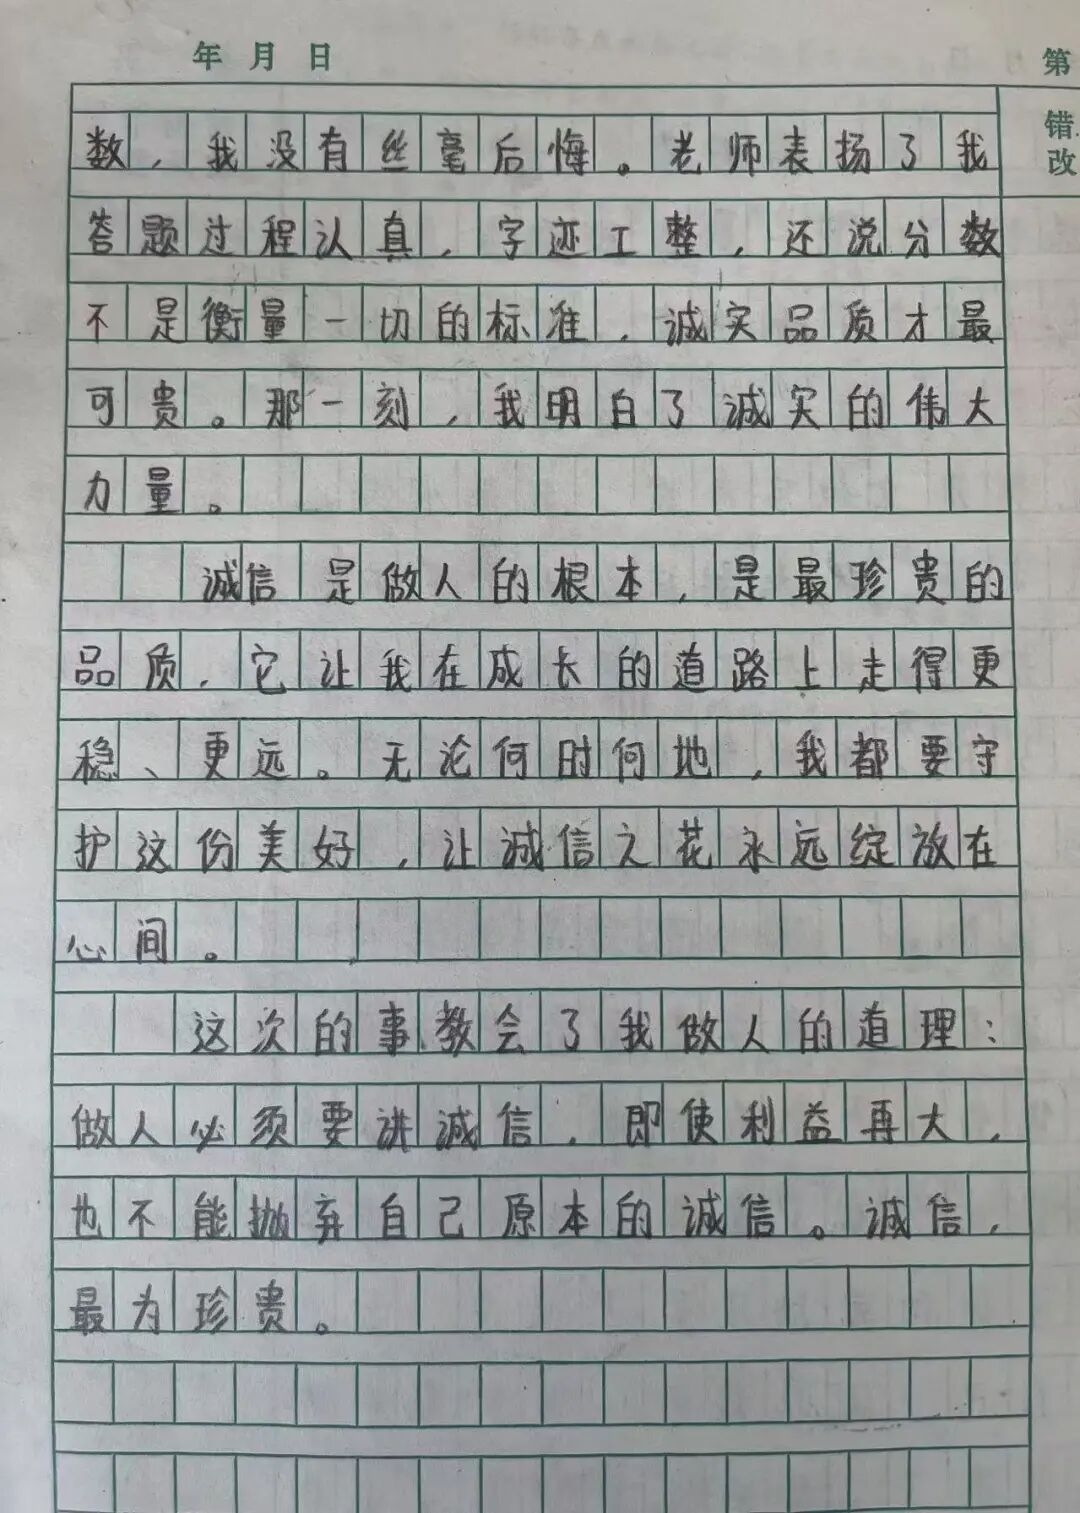 年 月 日
第
错
改
数，我没有丝毫后悔。老师表扬了我
答题过程认真，字迹工整，还说分数
不是衡量一切的标准，诚实品质才最
可贵。那一刻，我明白了诚实的伟大
力量。
诚信是做人的根本，是最珍贵的
品质，它让我在成长的道路上走得更
稳、更远。无论何时何地，我都要守
护这份美好，让诚信之花永远绽放在
心间。
这次的事教会了我做人的道理：
做人必须要讲诚信，即使利益再大，
也不能抛弃自己原本的诚信。诚信，
最为珍贵。